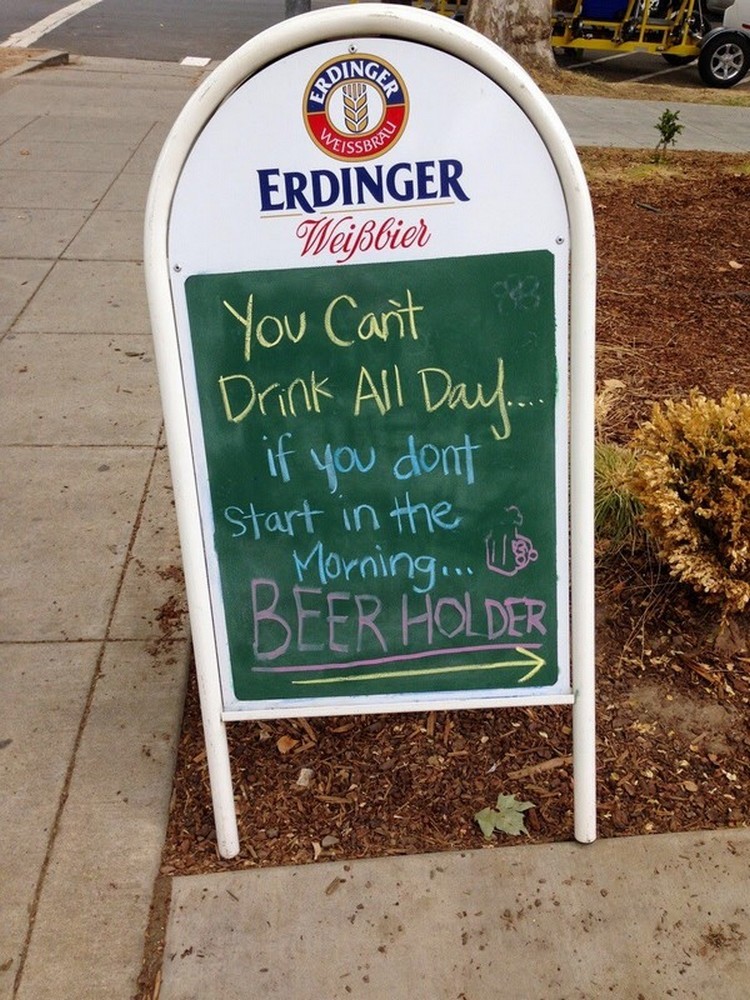 ERDINGER
WEISSBRÄU
ERDINGER
Weißbier
You Can't
Drink All Day....
if you dont
start in the
Morning...
BEER HOLDER